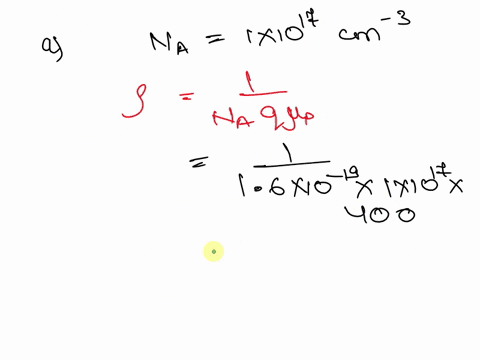 a) N_A = 1×10^17 cm^-3
ρ = 1/(N_A q μ_p)
= 1/(1.6×10^-19 × 1×10^17 × 400)